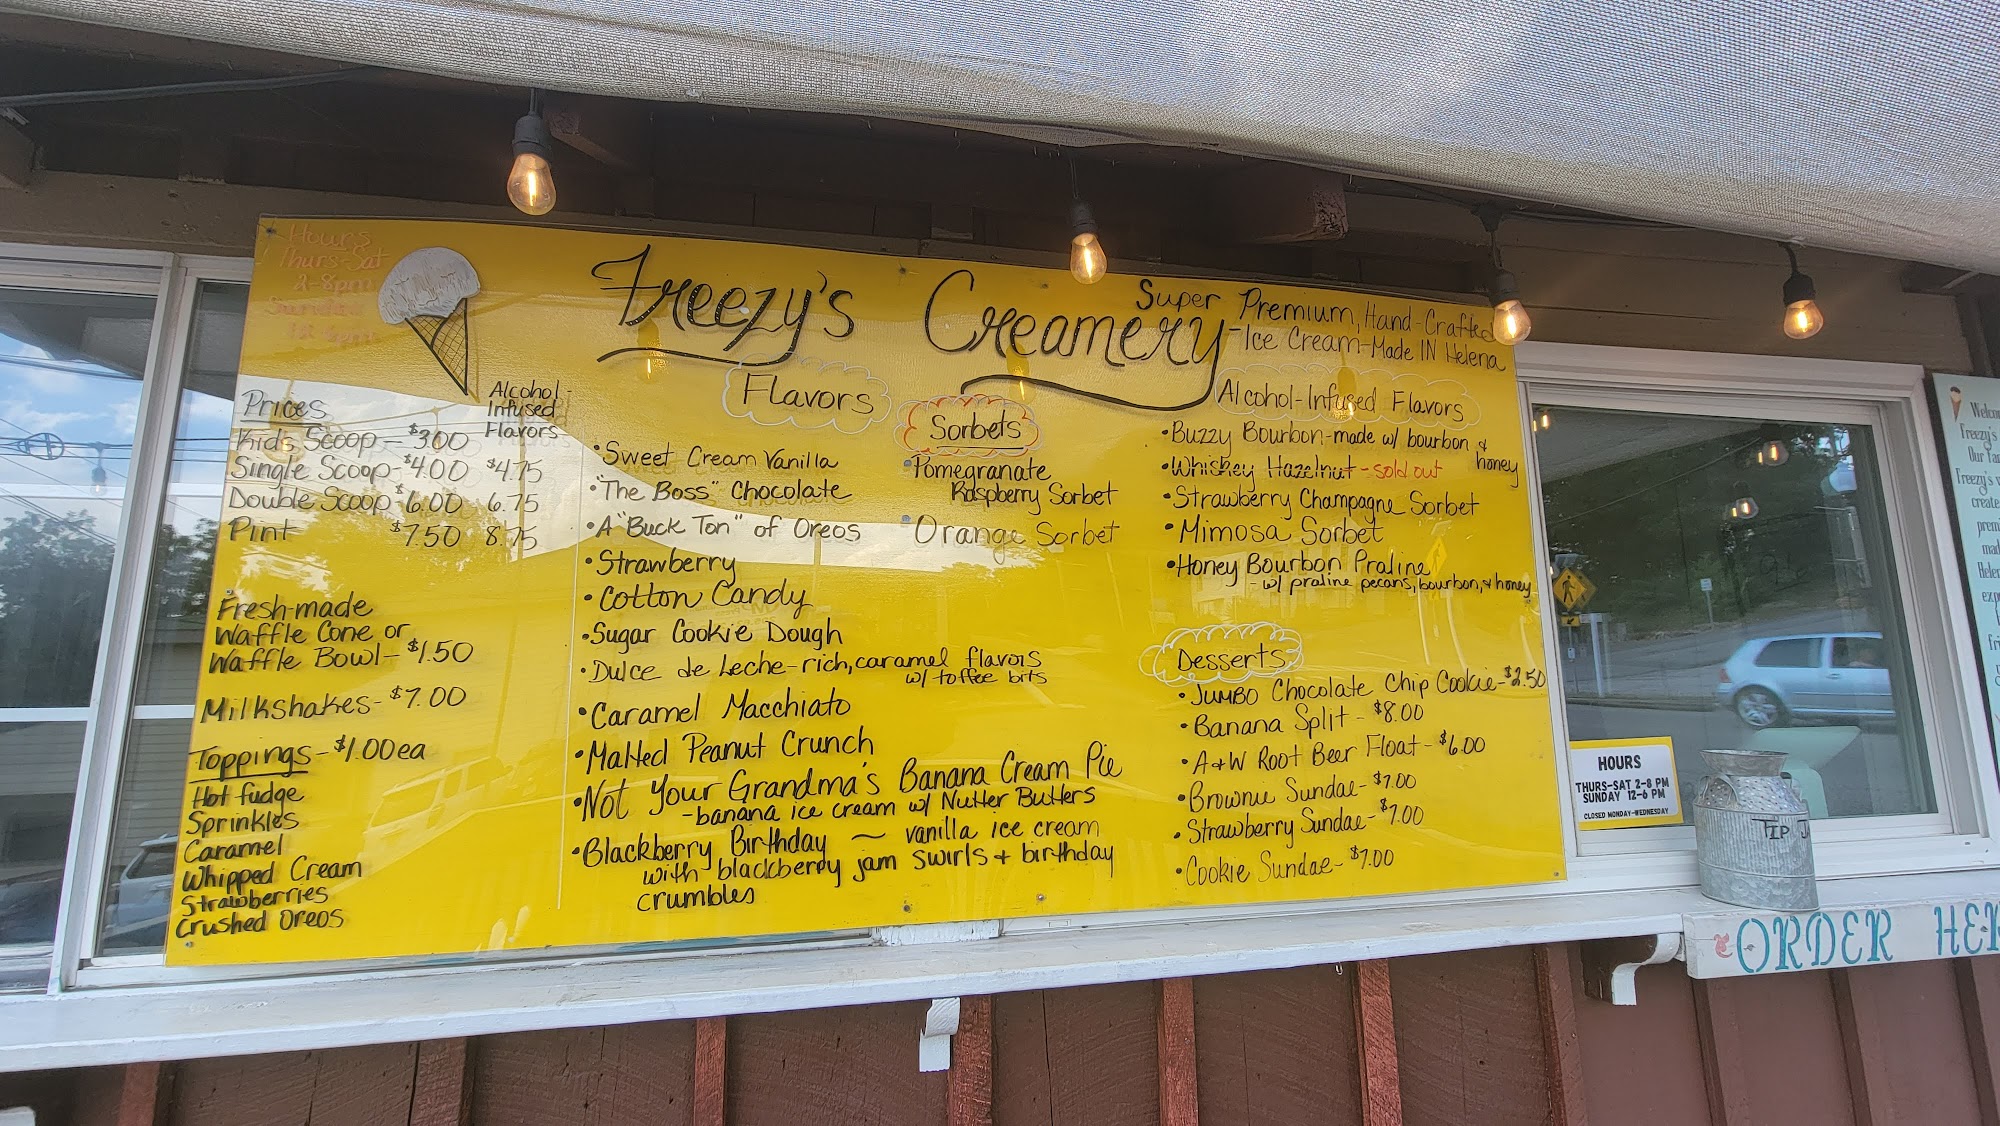 Hours
Thurs-Sat
2-8pm
Freezy's Creamery
Super Premium, Hand-Crafted
Ice Cream-Made IN Helena
Prices
Alcohol-
Infused
Flavors
Kid's Scoop - $3.00
Single Scoop - $4.00 $4.75
Double Scoop - $6.00 6.75
Pint $7.50 8.75
Fresh-made
Waffle Cone or
Waffle Bowl - $1.50
Milkshakes - $7.00
Toppings - $1.00 ea
Hot fudge
Sprinkles
Caramel
Whipped Cream
Strawberries
Crushed Oreos
Flavors
• Sweet Cream Vanilla
• "The Boss" Chocolate
• A "Buck Ton" of Oreos
• Strawberry
• Cotton Candy
• Sugar Cookie Dough
• Dulce de Leche - rich, caramel flavors
w/ toffee bits
• Caramel Macchiato
• Malted Peanut Crunch
• Not Your Grandma's Banana Cream Pie
- banana ice cream w/ Nutter Butters
• Blackberry Birthday ~ vanilla ice cream
with blackberry jam swirls + birthday
crumbles
Sorbets
• Pomegranate
Raspberry Sorbet
• Orange Sorbet
Alcohol-Infused Flavors
• Buzzy Bourbon - made w/ bourbon &
honey
• Whiskey Hazelnut - sold out
• Strawberry Champagne Sorbet
• Mimosa Sorbet
• Honey Bourbon Praline
- w/ praline pecans, bourbon, & honey
Desserts
• JUMBO Chocolate Chip Cookie - $2.50
• Banana Split - $8.00
• A&W Root Beer Float - $6.00
• Brownie Sundae - $7.00
• Strawberry Sundae - $7.00
• Cookie Sundae - $7.00
HOURS
THURS-SAT 2-8 PM
SUNDAY 12-6 PM
CLOSED MONDAY-WEDNESDAY
TIP
ORDER
Freezy's